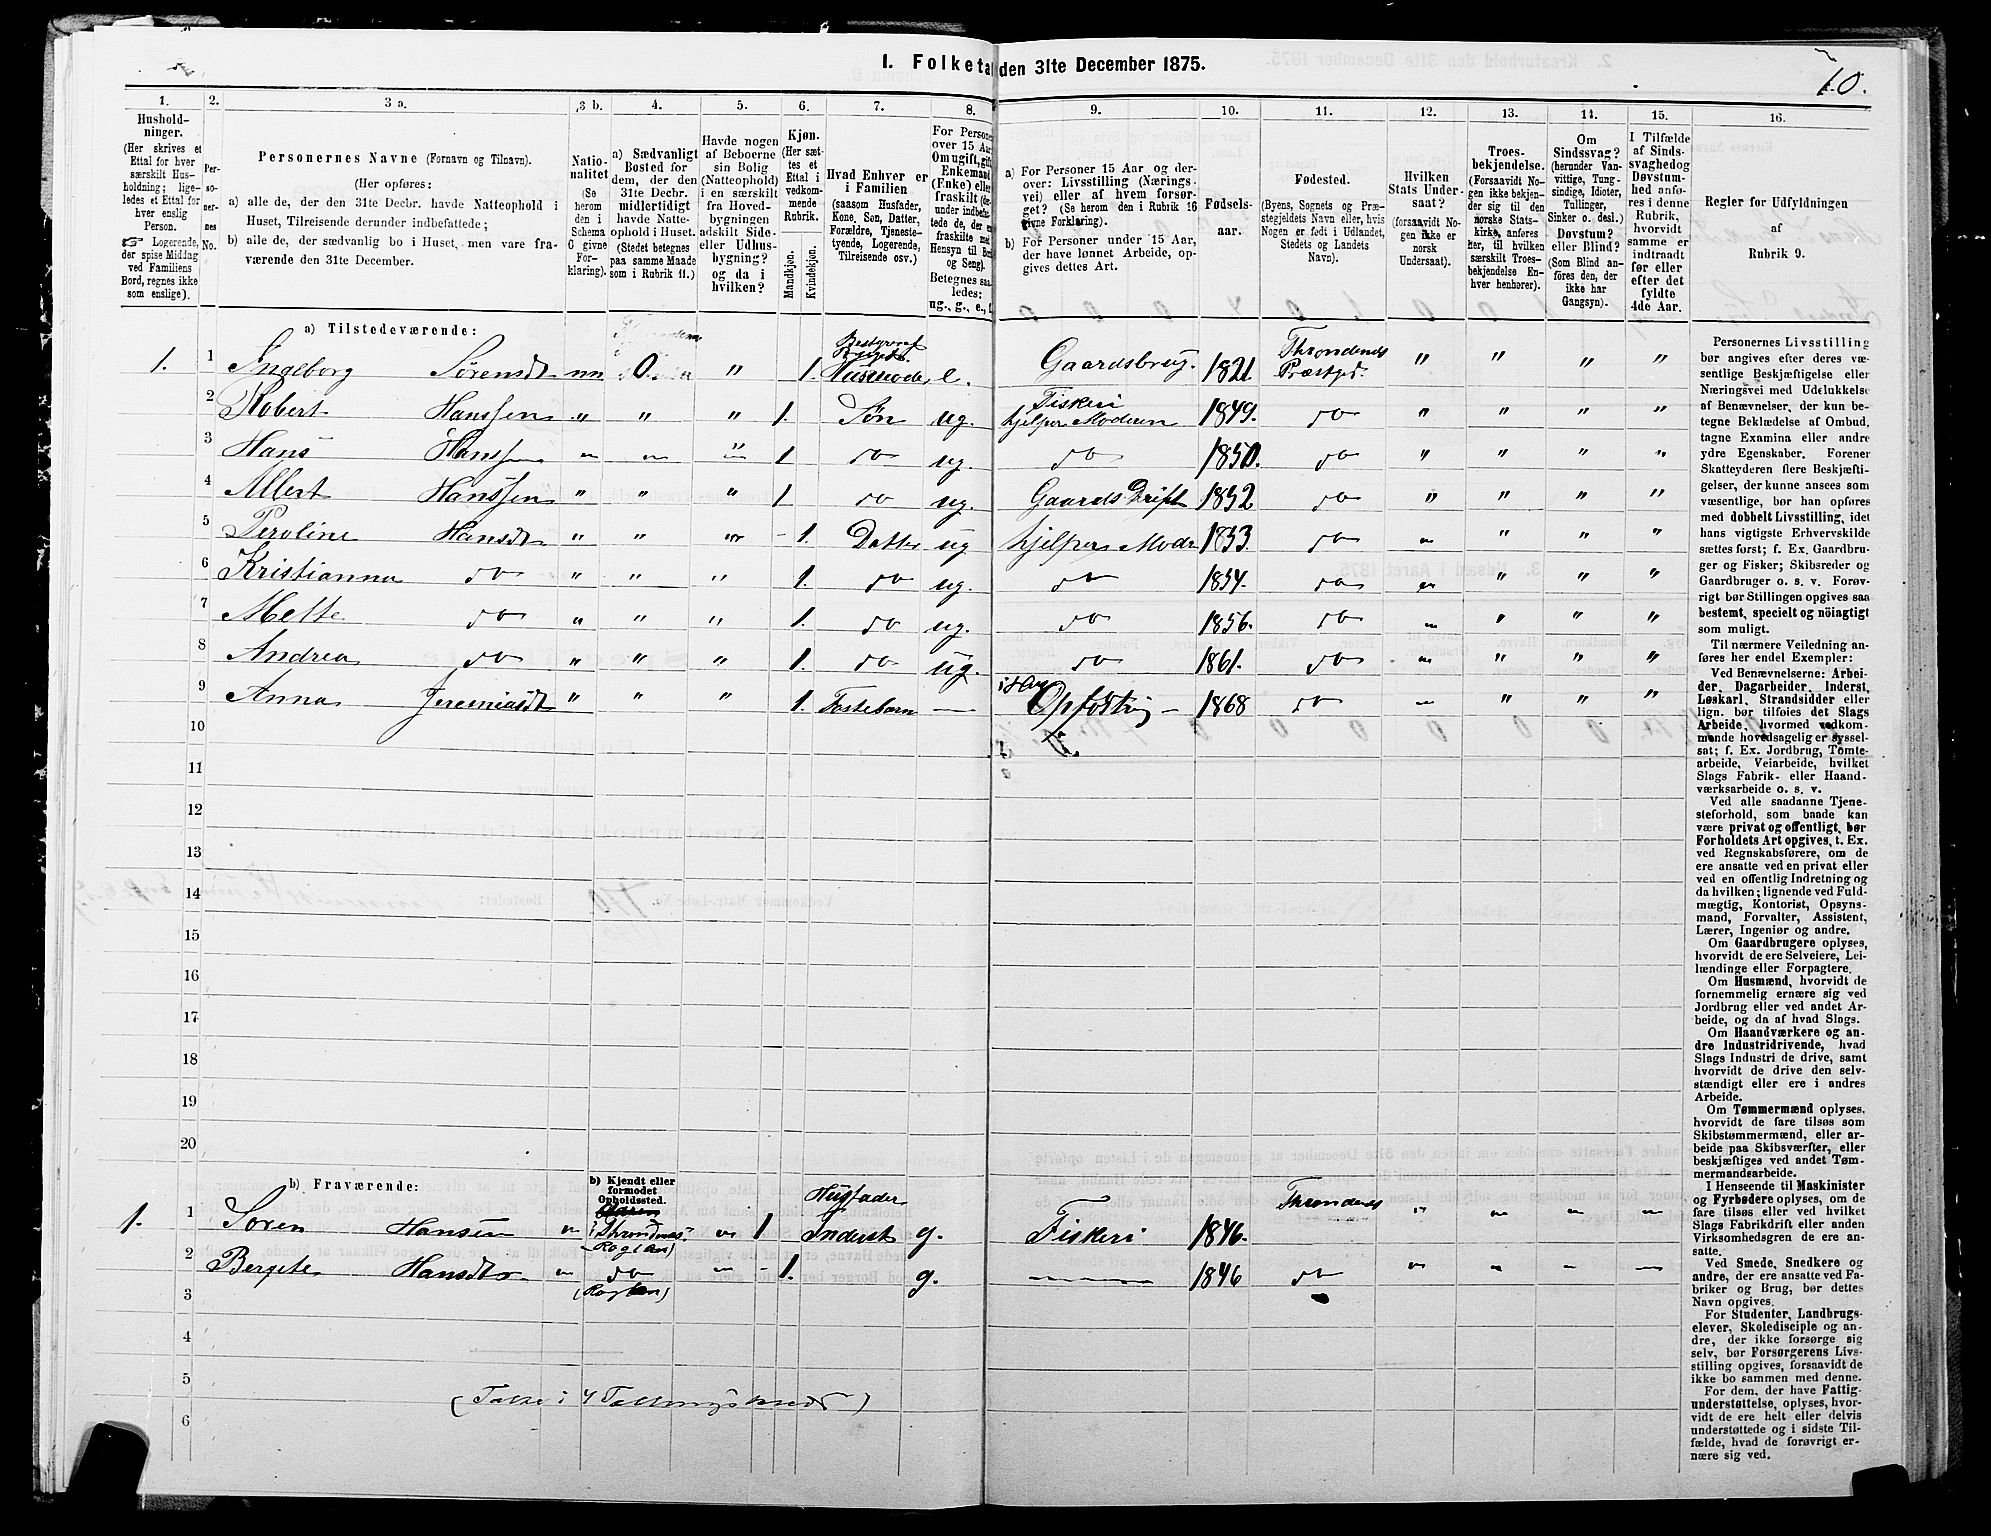 1. Folketal den 31te December 1875.
10.
1.
Hushold-
ninger.
(Her skrives et
Ettal for hver
særskilt Hus-
holdning; lige-
ledes et Ettal for
hver enslig
Person.
☞ Logerende,
der spise Middag
ved Familiens
Bord, regnes ikke
som enslige).
2.
Per-
so-
ner-
nes
No.
3 a.
Personernes Navne (Fornavn og Tilnavn).
(Her opføres:
a) alle de, der den 31te Decbr. havde Natteophold i
Huset, Tilreisende derunder indbefattede;
b) alle de, der sædvanlig bo i Huset, men vare fra-
værende den 31te December.
3 b.
Natio-
nalitet
(Se
herom
den i
Schema
G givne
For-
klaring).
4.
a) Sædvanligt
Bosted for
dem, der den
31te Decbr.
midlertidigt
havde Natte-
ophold i Huset.
(Stedet betegnes
paa samme Maade
som i Rubrik 11.)
5.
Havde nogen
af Beboerne
sin Bolig
(Natteophold)
i en særskilt
fra Hoved-
bygningen
adskilt Side-
eller Udhus-
bygning?
og da i
hvilken?
6.
Kjøn.
(Her sæt-
tes et
Ettal i
vedkom-
mende
Rubrik.
Mandkjøn.
Kvindekjøn.
7.
Hvad Enhver er
i Familien
(saasom Husfader,
Kone, Søn, Datter,
Forældre, Tjeneste-
tyende, Logerende,
Tilreisende osv.).
8.
For Personer
over 15 Aar:
Om ugift, gift,
Enkemand
(Enke) eller
fraskilt (der-
under indbefat-
tede de, der ere
fraskilte med
Hensyn til Bord
og Seng).
Betegnes saa-
ledes:
ug., g., e., f.
9.
a) For Personer 15 Aar og der-
over: Livsstilling (Nærings-
vei) eller af hvem forsør-
get? (Se herom den i Rubrik 16
givne Forklaring).
b) For Personer under 15 Aar,
der have lønnet Arbeide, op-
gives dettes Art.
10.
Fødsels-
aar.
11.
Fødested.
(Byens, Sognets og Præ-
stegjeldets Navn eller, hvis
Nogen er født i Udlandet,
Stedets og Landets
Navn).
12.
Hvilken
Stats Under-
saat?
(forsaavidt No-
gen ikke er
norsk
Undersaat).
13.
Troes-
bekjendelse.
(Forsaavidt No-
gen ikke bekjen-
der sig til den
norske Stats-
kirke, anføres
her, til hvilken
særskilt Troes-
bekjendelse En-
hver henhører).
14.
Om
Sindssvag?
(herunder Van-
vittige, Tung-
sindige, Idioter,
Tullinger,
Sinker o. desl.)
Døvstum?
eller Blind?
(Som Blind an-
føres den, der
ikke har
Gangsyn).
15.
I Tilfælde
af Sinds-
svaghed og
Døvstum-
hed anfø-
res i denne
Rubrik,
hvorvidt
samme er
indtraadt
før eller
efter det
fyldte
4de Aar.
16.
Regler for Udfyldningen
af
Rubrik 9.
a) Tilstedeværende:
1. 1 Ingeborg Sørensdt nn 0 " 1. Bestyrer Husmoder, e. Gaardsbrug. 1821. Throndenes Præstgd. " " " "
2 Robert Hanssen " " " 1. Søn ug. Fiskeri hjelper Moderen 1849. do " " " "
3 Hans Hanssen " " " 1 do ug. do 1850. do " " " "
4 Albert Hanssen " " " 1 do ug. Gaards Drift 1852 do " " " "
5 Peroline Hansdt " " " - 1. Datter ug hjelper Modr 1853. do " " " "
6 Kristianna do " " " 1. do ug. do 1854. do " " " "
7 Mette do " " " 1. do ug. do 1856. do " " " "
8 Andrea do " " " 1. do ug. do 1861. do " " " "
9 Anna Jeremiasdt " " " 1. Fosterbarn — Opfostring - 1868 do " " " "
10
11
12
13
14
15
16
17
18
19
20
b) Fraværende:
b) Kjendt eller
formodet
Opholdssted.
1. 1 Søren Hansen " Throndnes (Roglen) " 1 Husfader Inderst g. Fiskeri 1846. Throndenes " " " "
2 Bergete Hansdtr " do (Roglen) " - 1. g. 1846 do " " " "
3
4
5
6
(Talte i 4 Tællingskreds)
Personernes Livsstilling
bør angives efter deres væ-
sentlige Beskjæftigelse eller
Næringsvei med Udelukkelse
af Benævnelser, der kun be-
tegne Beklædelse af Ombud,
tagne Examina eller andre
ydre Egenskaber. Forener
Skatteyderen flere Beskjæfti-
gelser, der kunne ansees som
væsentlige, bør han opføres
med dobbelt Livsstilling, idet
hans vigtigste Erhvervskilde
sættes først; f. Ex. Gaardbru-
ger og Fisker; Skibsreder og
Gaardbruger o. s. v. Forøv-
rigt bør Stillingen opgives saa
bestemt, specielt og nöiagtigt
som muligt.
Til nærmere Veiledning an-
føres her endel Exempler:
Ved Benævnelserne: Arbei-
der, Dagarbeider, Inderst,
Løskarl, Strandsidder eller
lign. bør tilføies det Slags
Arbeide, hvormed vedkom-
mende hovedsagelig er syssel-
sat; f. Ex. Jordbrug, Tomte-
arbeide, Veiarbeide, hvilket
Slags Fabrik- eller Haand-
værksarbeide o. s. v.
Ved alle saadanne Tjene-
steforhold, som baade kan
være privat og offentligt, bør
Forholdets Art opgives, t. Ex.
ved Regnskabsførere, om de
ere ansatte ved en privat eller
ved en offentlig Indretning og
da hvilken; lignende ved Fuld-
mægtig, Kontorist, Opsyns-
mand, Forvalter, Assistent,
Lærer, Ingeniør og andre.
Om Gaardbrugere oplyses,
hvorvidt de ere Selveiere, Lei-
lændinge eller Forpagtere.
Om Husmænd, hvorvidt de
fornemmelig ernære sig ved
Jordbrug eller ved andet Ar-
beide, og da af hvad Slags.
Om Haandværkere og an-
dre Industridrivende, hvad
Slags Industri de drive, samt
hvorvidt de drive den selv-
stændigt eller ere i andres
Arbeide.
Om Tømmermænd oplyses,
hvorvidt de fare tilsøs som
Skibstømmermænd, eller ar-
beide paa Skibsværfter, eller
beskjæftiges ved andet Tøm-
mermandsarbeide.
I Henseende til Maskinister
og Fyrbødere oplyses, om de
fare tilsøs eller ved hvilket
Slags Fabrikdrift eller anden
Virksomhedsgren de ere an-
satte.
Ved Smede, Snedkere og
andre, der ere ansatte ved Fa-
briker og Brug, bør dettes
Navn opgives.
For Studenter, Landbrugs-
elever, Skoledisciple og an-
dre, der ikke forsørge sig
selv, bør Forsørgerens Livs-
stilling opgives, forsaavidt de
ikke bo sammen med denne.
For dem, der have Fattig-
understøttelse, oplyses, hvor-
vidt de ere helt eller delvis
understøttede og i sidste Til-
fælde, hvad de forøvrigt er-
nære sig ved.